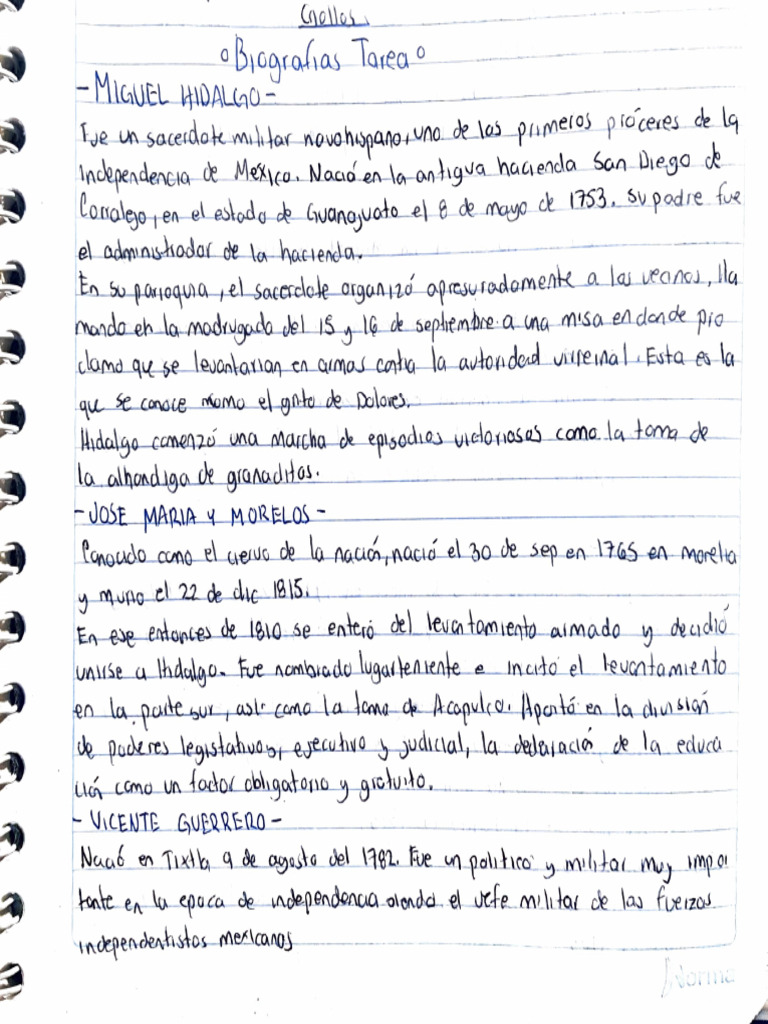 °Biografias Tarea°
- MIGUEL HIDALGO -
Fue un sacerdote militar novohispano, uno de los primeros próceres de la
Independencia de Mexico. Nació en la antigua hacienda San Diego de
Corralego, en el estado de Guanajuato el 8 de mayo de 1753. Su padre fue
el administrador de la hacienda.
En su parroquia, el sacerdote organizó apresuradamente a los vecinos, lla
mando en la madrugada del 15 y 16 de septiembre a una misa en donde pro
clamo que se levantarian en armas contra la autoridad virreinal. Esta es la
que se conoce momo el grito de Dolores.
Hidalgo comenzó una marcha de episodios victoriosos como la toma de
la alhondiga de granaditos.
- JOSE MARIA Y MORELOS -
Conocido como el ciervo de la nación, nació el 30 de sep en 1765 en morelia
y murio el 22 de dic 1815.
En ese entonces de 1810 se enteró del levantamiento armado y decidió
unirse a Hidalgo. Fue nombrado lugarteniente e incitó el levantamiento
en la parte sur, asi como la toma de Acapulco. Aportó en la división
de poderes legistativos, ejecutivo y judicial, la declaración de la educa
ción como un factor obligatorio y gratuito.
- VICENTE GUERRERO -
Nació en Tixtla 9 de agosto del 1782. Fue un politico y militar muy impor
tante en la epoca de independencia el jefe militar de las fuerzas
independentistas mexicanos
Norma